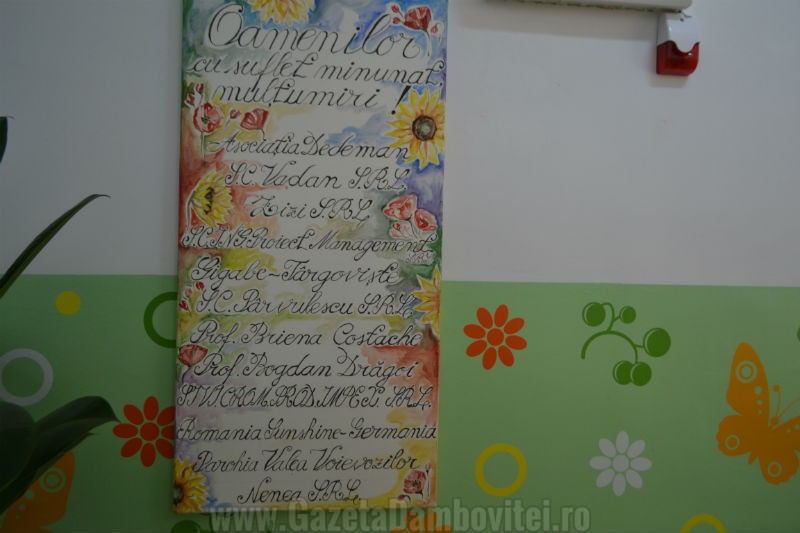 Oamenilor
cu suflet minunat,
mulțumiri!
Asociația Dedeman
S.C. Vadan S.R.L.
Zizi S.R.L.
S.C. ING. Proiect Management
S.R.L.
Gigabe-Târgoviște
S.C. Pârvulescu S.R.L.
Prof. Briena Costache
Prof. Bogdan Drăgoi
PROD. IMPEX S.R.L.
Romania Sunshine-Germania
Parohia Valea Voievozilor
Nenea S.R.L.
www.GazetaDambovitei.ro